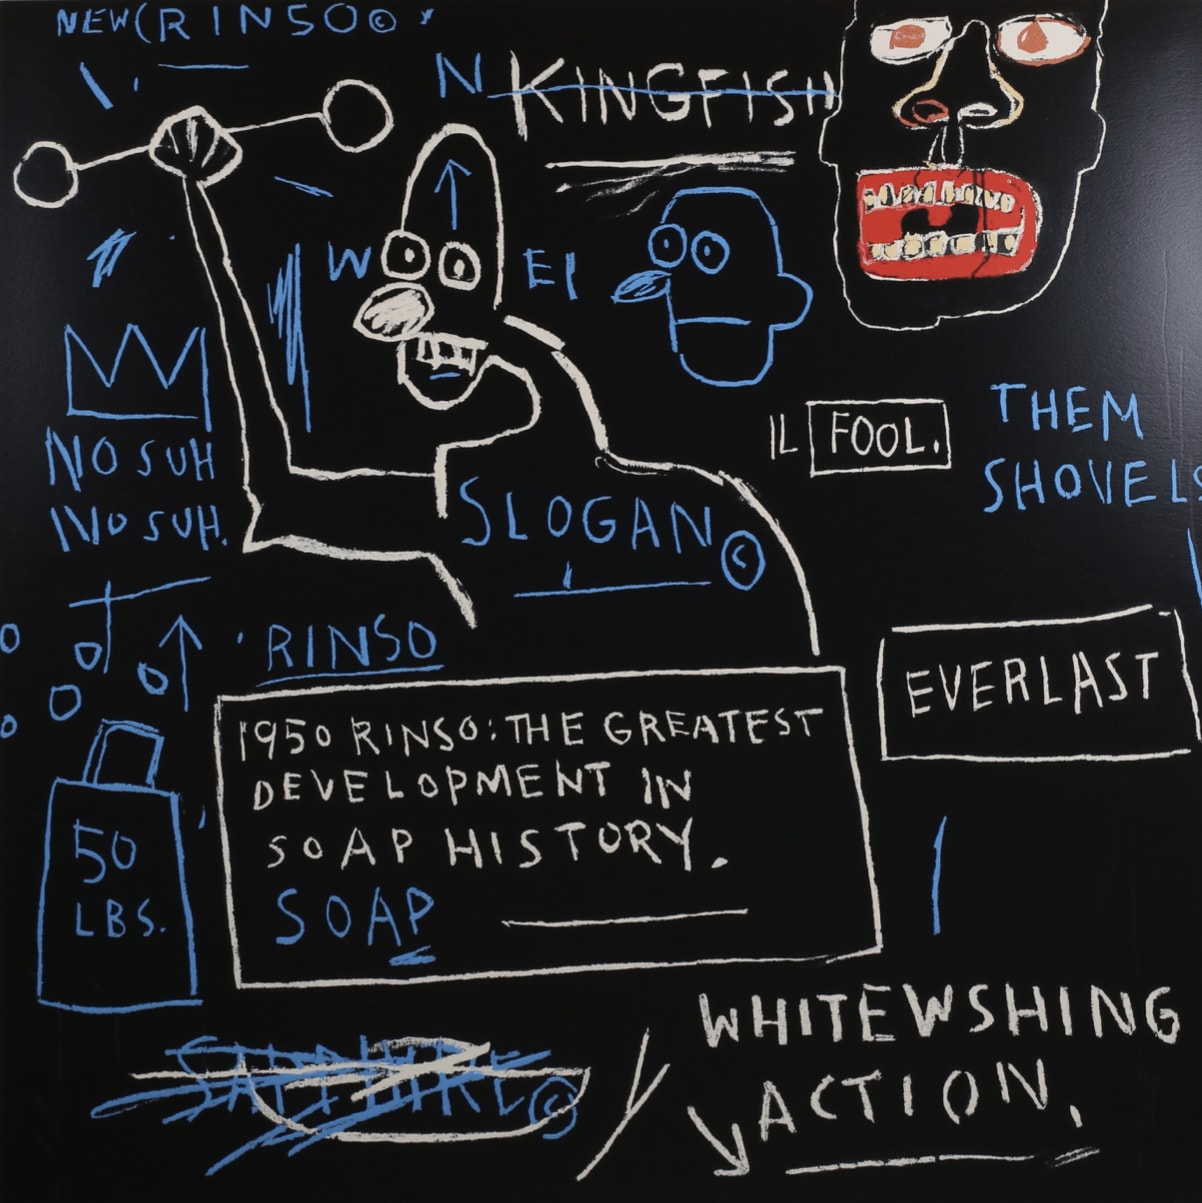 NEW (RINSO©
N KINGFISH
W
EI
IL FOOL.
THEM
SHOVELS
NO SUH
NO SUH.
SLOGAN©
RINSO
EVERLAST
1950 RINSO: THE GREATEST
DEVELOPMENT IN
SOAP HISTORY.
SOAP
50
LBS.
SAPPHIRE©
WHITEWSHING
ACTION.